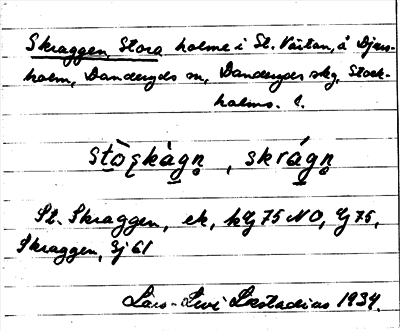 Skraggen, Stora holme i St. Värtan, å Djurs-
holm, Danderyds sn, Danderyds skg, Stock-
holms l.
skrágn̥
St. Skraggen, ek, kfg 75 NO, Gj 75,
Skraggen, Sj 61
Lars-Levi Læstadius 1934.